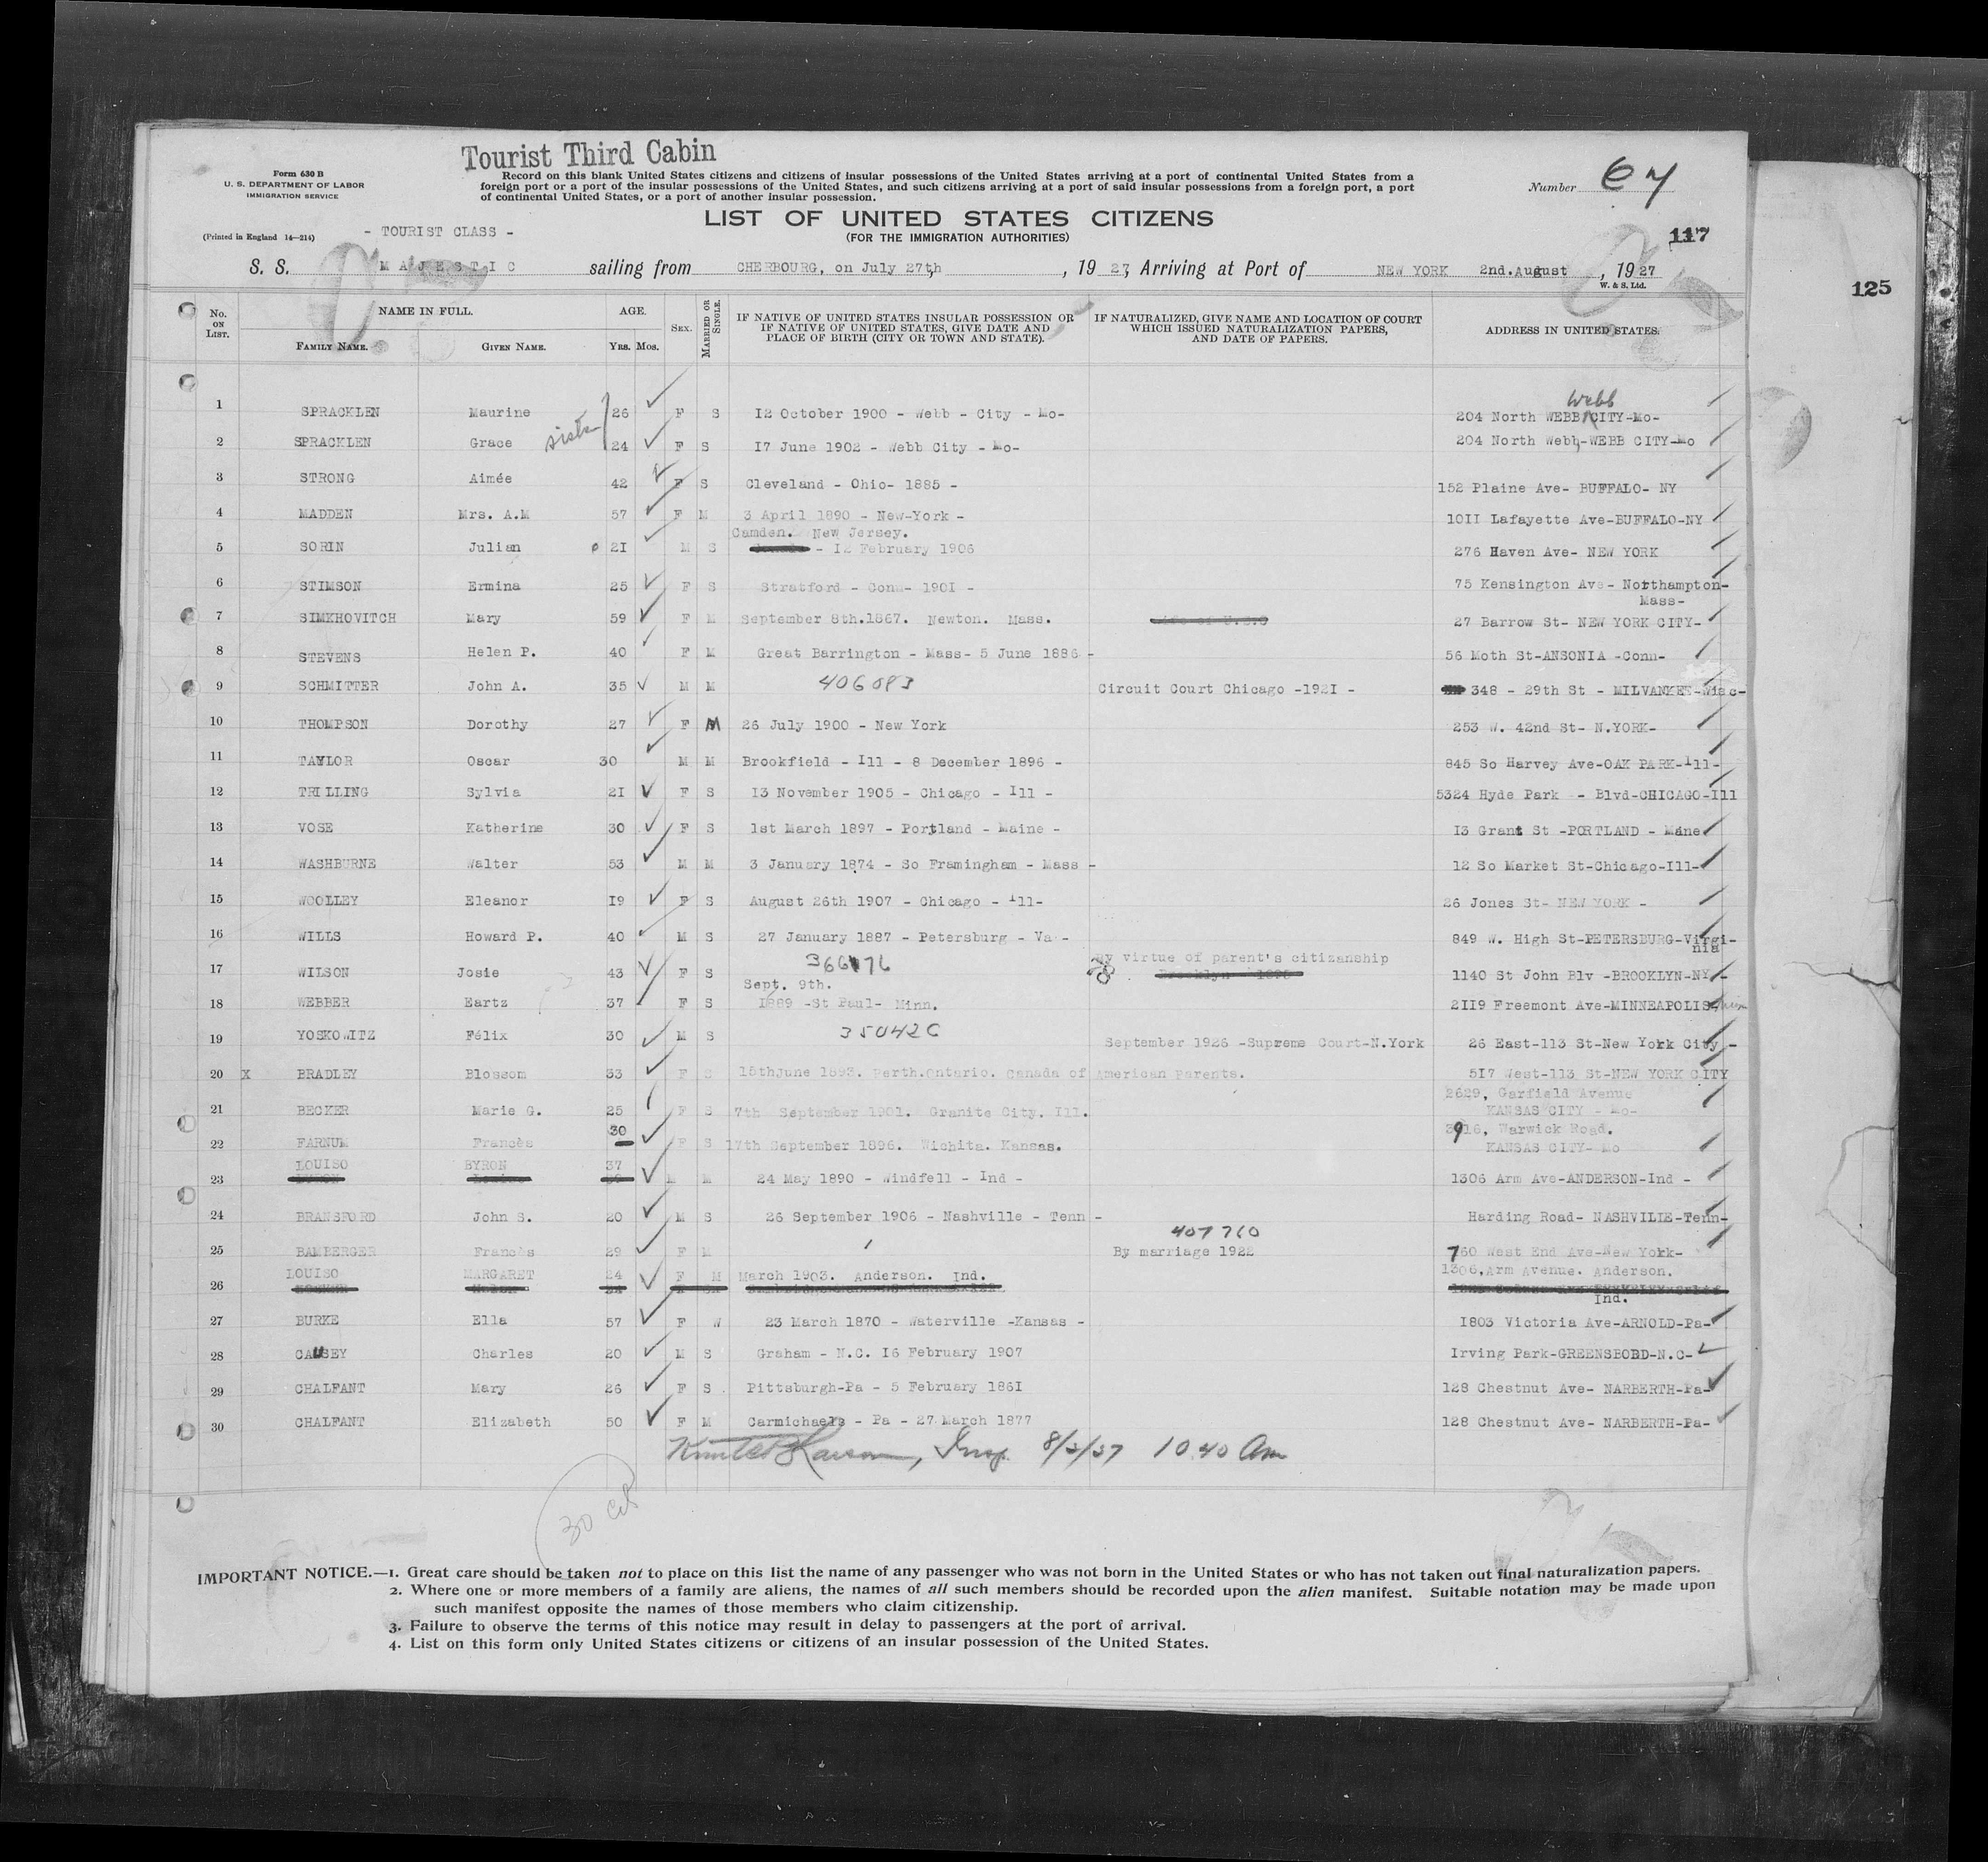 Tourist Third Cabin
Form 630 B
U. S. DEPARTMENT OF LABOR
IMMIGRATION SERVICE
Record on this blank United States citizens and citizens of insular possessions of the United States arriving at a port of continental United States from a
foreign port or a port of the insular possessions of the United States, and such citizens arriving at a port of said insular possessions from a foreign port, a port
of continental United States, or a port of another insular possession.
Number 67
LIST OF UNITED STATES CITIZENS
(FOR THE IMMIGRATION AUTHORITIES)
(Printed in England 14—214)
- TOURIST CLASS -
117
125
S. S. MAJESTIC sailing from CHERBOURG, on July 27th, , 19 27, Arriving at Port of NEW YORK 2nd.August , 19 27
W. & S. Ltd.
No. ON LIST. NAME IN FULL. FAMILY NAME. GIVEN NAME. AGE. YRS. MOS. SEX. MARRIED OR SINGLE. IF NATIVE OF UNITED STATES INSULAR POSSESSION OR IF NATIVE OF UNITED STATES, GIVE DATE AND PLACE OF BIRTH (CITY OR TOWN AND STATE). IF NATURALIZED, GIVE NAME AND LOCATION OF COURT WHICH ISSUED NATURALIZATION PAPERS, AND DATE OF PAPERS. ADDRESS IN UNITED STATES.
Webb
1 SPRACKLEN Maurine 26 F S 12 October 1900 - Webb - City - Mo- 204 North WEBB CITY-Mo-
sister
2 SPRACKLEN Grace 24 F S 17 June 1902 - Webb City - Mo- 204 North Webb-WEBB CITY-Mo
3 STRONG Aimée 42 F S Cleveland - Ohio- 1885 - 152 Plaine Ave- BUFFALO- NY
4 MADDEN Mrs. A.M 57 F M 3 April 1890 - New-York - 1011 Lafayette Ave-BUFFALO-NY
Camden. New Jersey.
5 SORIN Julian 21 M S - 12 February 1906 276 Haven Ave- NEW YORK
6 STIMSON Ermina 25 F S Stratford - Conn- 1901 - 75 Kensington Ave- Northampton-
Mass-
7 SIMKHOVITCH Mary 59 F M September 8th.1867. Newton. Mass. 27 Barrow St- NEW YORK CITY-
8 STEVENS Helen P. 40 F M Great Barrington - Mass- 5 June 1886 - 56 Moth St-ANSONIA -Conn-
9 SCHMITTER John A. 35 M M 406083 Circuit Court Chicago -1921 - 348 - 29th St - MILVANKEE-Wisc-
10 THOMPSON Dorothy 27 F M 26 July 1900 - New York 253 W. 42nd St- N.YORK-
11 TAYLOR Oscar 30 M M Brookfield - Ill - 8 December 1896 - 845 So Harvey Ave-OAK PARK-Ill-
12 TRILLING Sylvia 21 F S 13 November 1905 - Chicago - Ill - 5324 Hyde Park - Blvd-CHICAGO-Ill
13 VOSE Katherine 30 F S 1st March 1897 - Portland - Maine - 13 Grant St -PORTLAND - Maine
14 WASHBURNE Walter 53 M M 3 January 1874 - So Framingham - Mass - 12 So Market St-Chicago-Ill-
15 WOOLLEY Eleanor 19 F S August 26th 1907 - Chicago - Ill- 26 Jones St- NEW YORK -
16 WILLS Howard P. 40 M S 27 January 1887 - Petersburg - Va - 849 W. High St-PETERSBURG-Virgi-
nia
366176 By virtue of parent's citizenship
17 WILSON Josie 43 F S 1140 St John Blv -BROOKLYN-NY -
Sept. 9th.
18 WEBBER Eartz 37 F S 1889 -St Paul- Minn. 2119 Freemont Ave-MINNEAPOLIS
19 YOSKOWITZ Félix 30 M S 350426 September 1926 -Supreme Court-N.York 26 East-113 St-New York City -
20 X BRADLEY Blossom 33 F S 15thJune 1893. Perth.Ontario. Canada of American Parents. 517 West-113 St-NEW YORK CITY
2629, Garfield Avenue
21 BECKER Marie G. 25 F S 7th September 1901. Granite City. Ill. KANSAS CITY - Mo-
30 3916, Warwick Road.
22 FARNUM Francès F S 17th September 1896. Wichita. Kansas. KANSAS CITY- Mo
LOUISO BYRON 37
23 M M 24 May 1890 - Windfell - Ind - 1306 Arm Ave-ANDERSON-Ind -
24 BRANSFORD John S. 20 M S 26 September 1906 - Nashville - Tenn - Harding Road- NASHVILLE-Tenn-
407760
25 BAMBERGER Francès 29 F M By marriage 1922 760 West End Ave-New York-
LOUISO MARGARET 24 F M March 1903. Anderson. Ind. 1306,Arm Avenue. Anderson.
26
Ind.
27 BURKE Ella 57 F W 23 March 1870 - Waterville -Kansas - 1803 Victoria Ave-ARNOLD-Pa-
28 CAUSEY Charles 20 M S Graham - N.C. 16 February 1907 Irving Park-GREENSBORD-N.C-
29 CHALFANT Mary 26 F S Pittsburgh-Pa - 5 February 1861 128 Chestnut Ave- NARBERTH-Pa-
30 CHALFANT Elizabeth 50 F M Carmichaels - Pa - 27 March 1877 128 Chestnut Ave- NARBERTH-Pa-
Insp. 8/2/27 10 40 Am
30
IMPORTANT NOTICE.—1. Great care should be taken not to place on this list the name of any passenger who was not born in the United States or who has not taken out final naturalization papers.
2. Where one or more members of a family are aliens, the names of all such members should be recorded upon the alien manifest. Suitable notation may be made upon
such manifest opposite the names of those members who claim citizenship.
3. Failure to observe the terms of this notice may result in delay to passengers at the port of arrival.
4. List on this form only United States citizens or citizens of an insular possession of the United States.